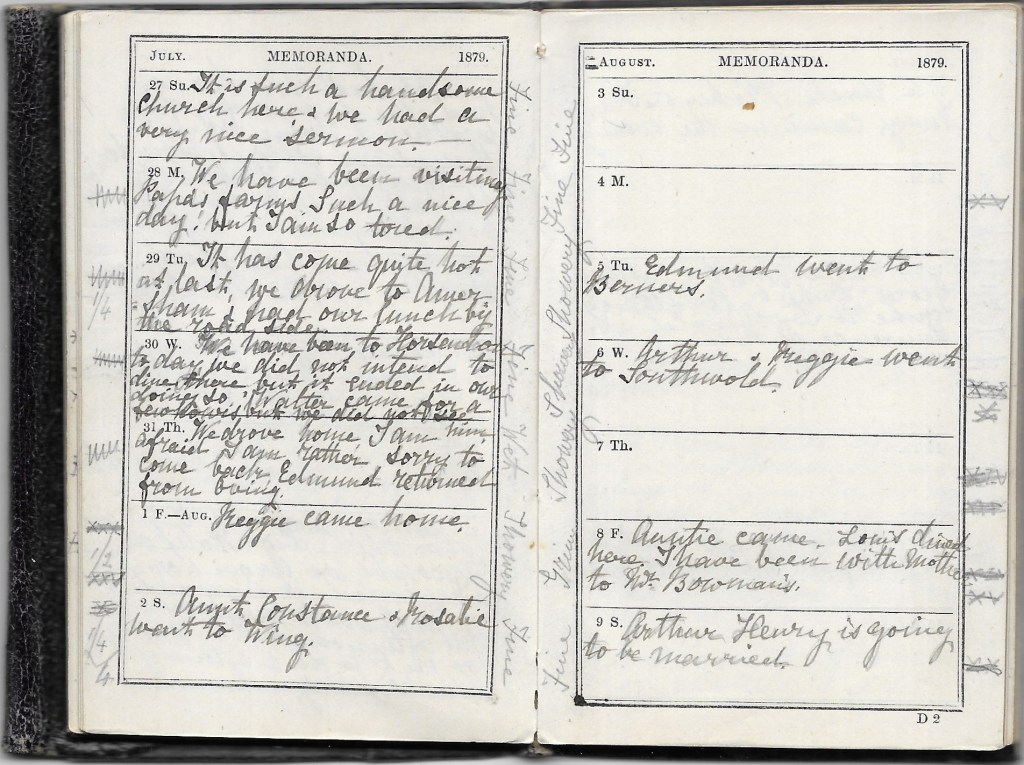 JULY. MEMORANDA. 1879.
27 Su. It is such a handsome
church here & we had a
very nice sermon. —
28 M. We have been visiting
Papa's farms Such a nice
day! but I am so tired.
29 Tu. It has come quite hot
at last, we drove to Amer-
-sham & had our lunch by
the road side.
30 W. We have been to Horsendon
to day, we did not intend to
dine there but it ended in our
doing so. Walter came for a
few hours but we did not see
him.
31 Th. We drove home, I am
afraid I am rather sorry to
come back. Edmund returned
from
1 F.—AUG. Reggie came home.
2 S. Aunt Constance & Rosalie
went to Wing.
Fine Fine Fine Fine Wet Showery Fine
AUGUST. MEMORANDA. 1879.
3 Su.
4 M.
5 Tu. Edmund went to
Berners.
6 W. Arthur & Reggie went
to Southwold.
7 Th.
8 F. Auntie came. Louis dined
here. I have been with Mother
to Mr. Bowman's.
9 S. Arthur Henry is going
to be married.
Fine Showery Showery Fine Fine
1/4
1/2
1/4
D 2